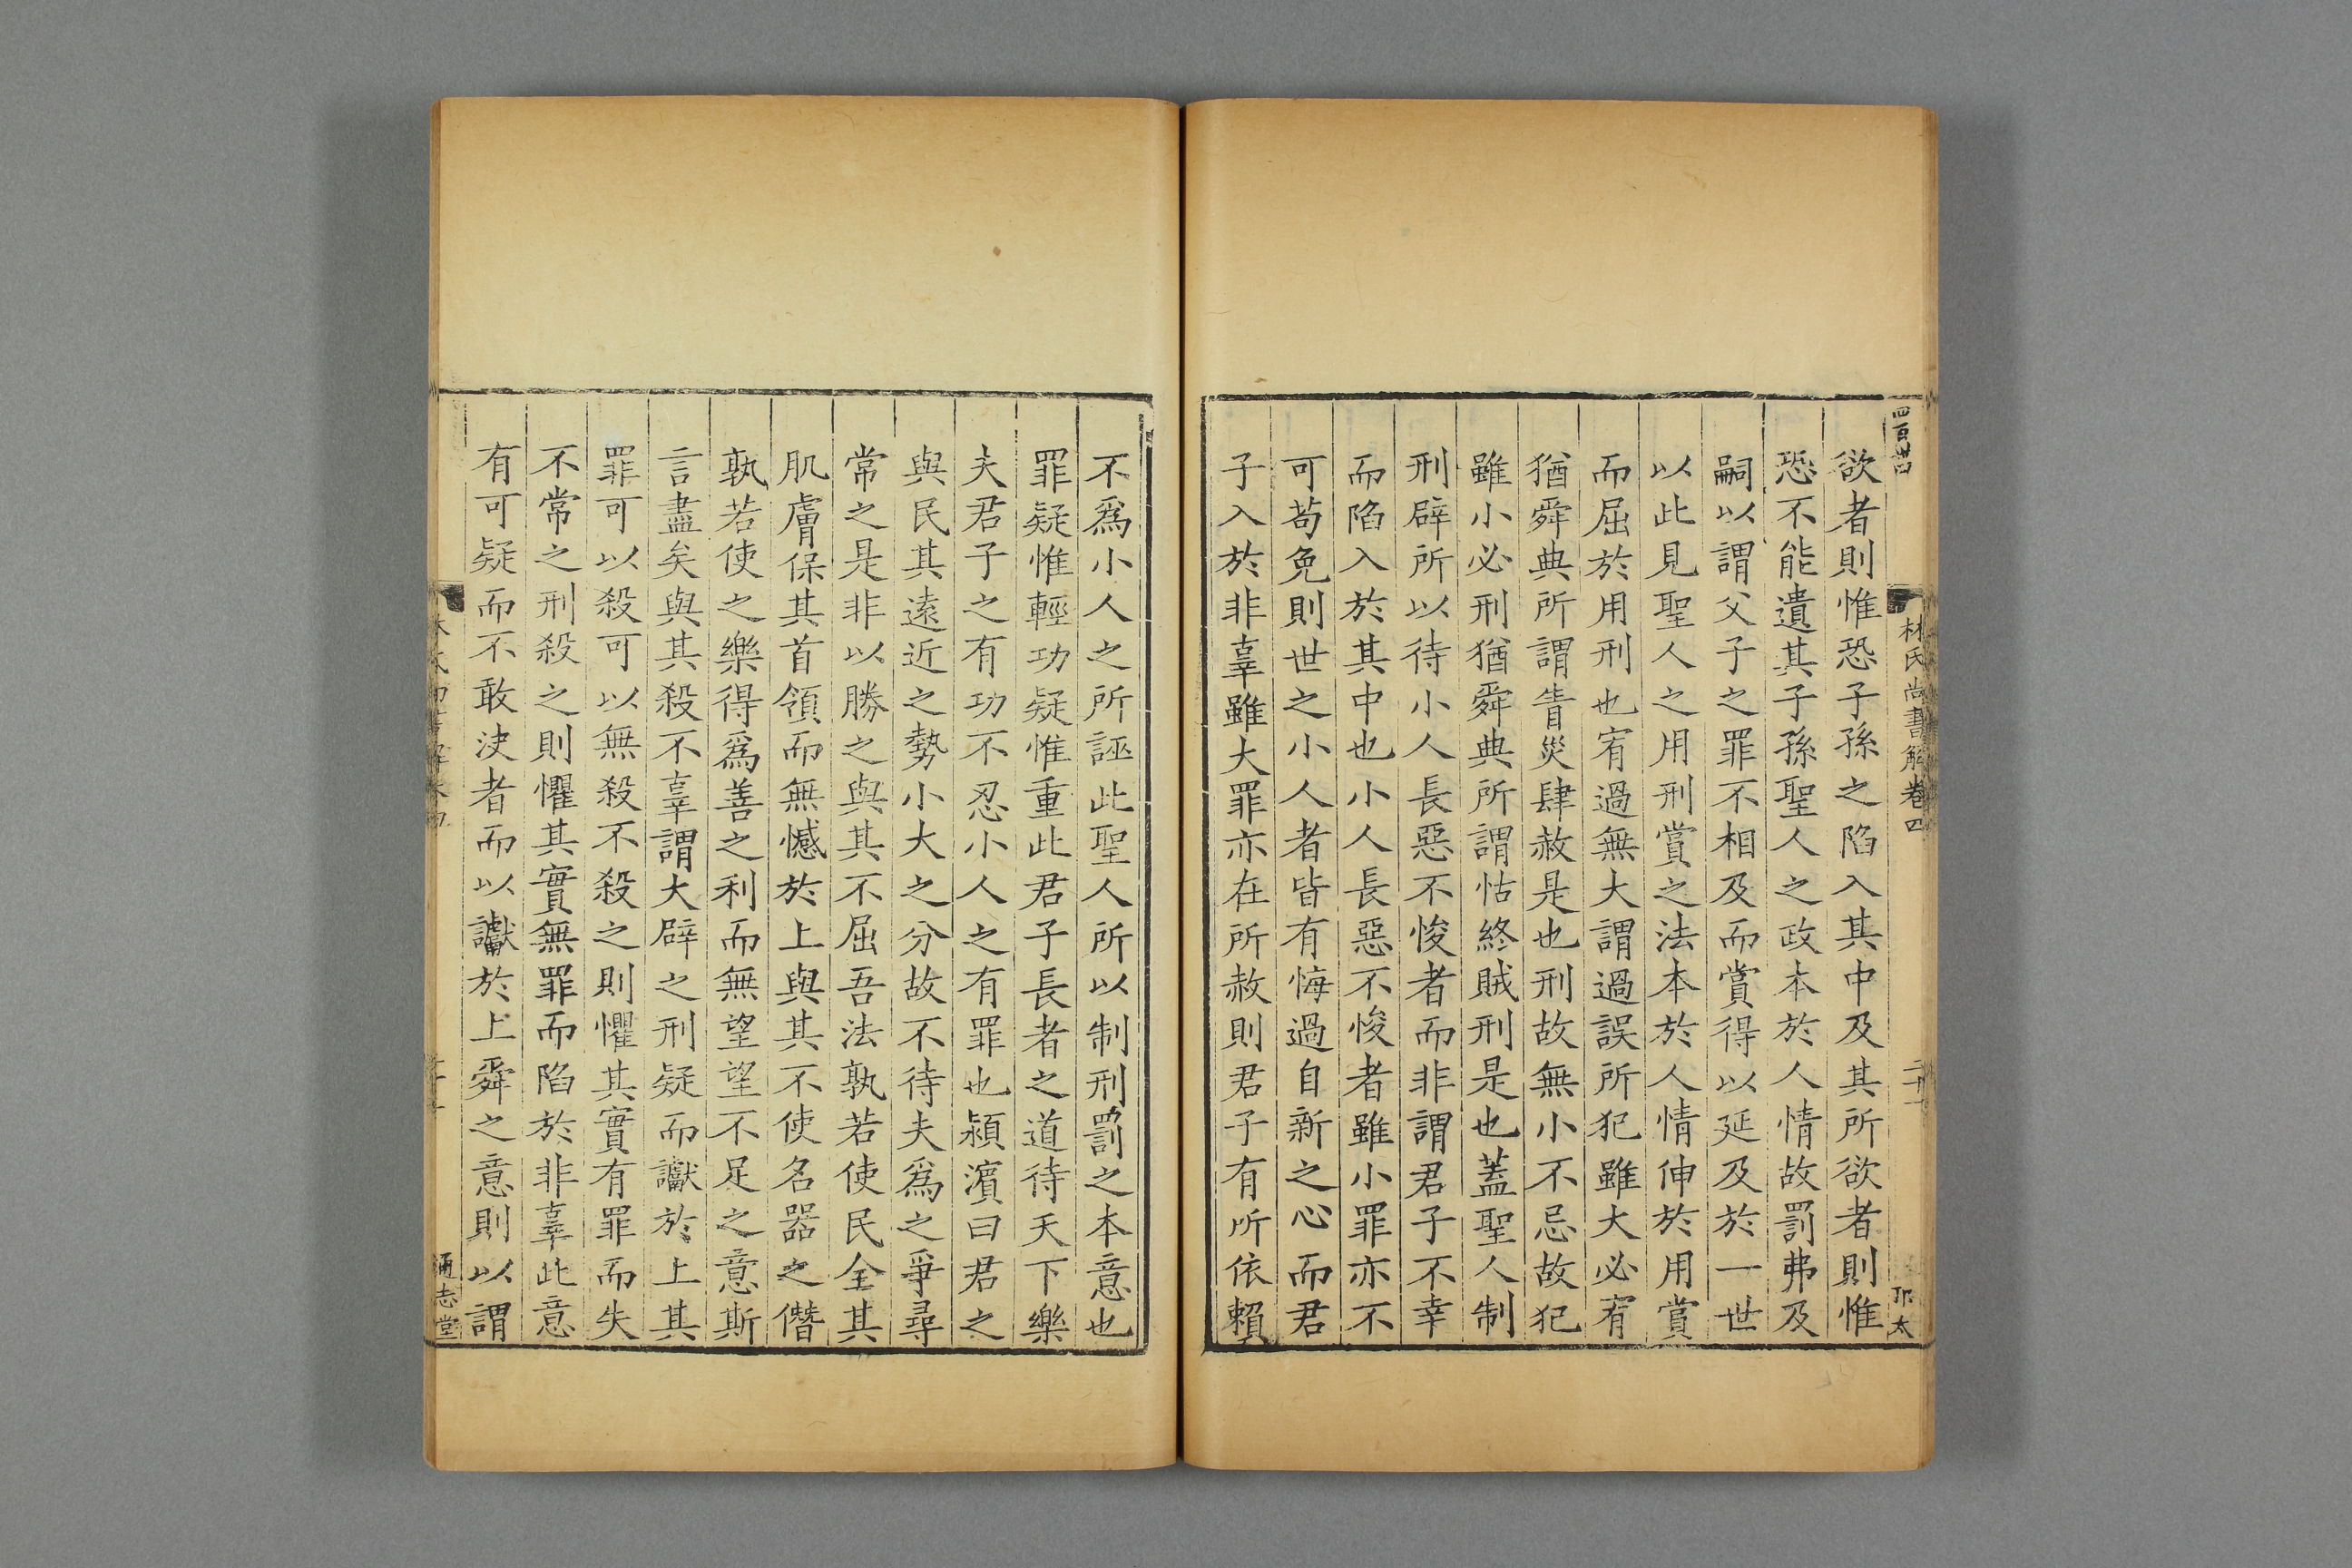 林氏尚書解卷四
欲者則惟恐子孫之陷入其中及其所欲者則惟
恐不能遺其子孫聖人之政本於人情故罰弗及
嗣以謂父子之罪不相及而賞得以延及於一世
以此見聖人之用刑賞之法本於人情伸於用賞
而屈於用刑也宥過無大謂過誤所犯雖大必宥
猶舜典所謂眚災肆赦是也刑故無小不忌故犯
雖小必刑猶舜典所謂怙終賊刑是也蓋聖人制
刑辟所以待小人長惡不悛者而非謂君子不幸
而陷入於其中也小人長惡不悛者雖小罪亦不
可苟免則世之小人者皆有悔過自新之心而君
子入於非辜雖大罪亦在所赦則君子有所依賴
不爲小人之所誣此聖人所以制刑罰之本意也
罪疑惟輕功疑惟重此君子長者之道待天下樂
夫君子之有功不忍小人之有罪也潁濱曰君之
與民其遠近之勢小大之分故不待夫爲之爭尋
常之是非以勝之與其不屈吾法孰若使民全其
肌膚保其首領而無憾於上與其不使名器之僭
孰若使之樂得爲善之利而無望望不足之意斯
言盡矣與其殺不辜謂大辟之刑疑而讞於上其
罪可以殺可以無殺不殺之則懼其實有罪而失
不常之刑殺之則懼其實無罪而陷於非辜此意
有可疑而不敢決者而以讞於上舜之意則以謂
通志堂